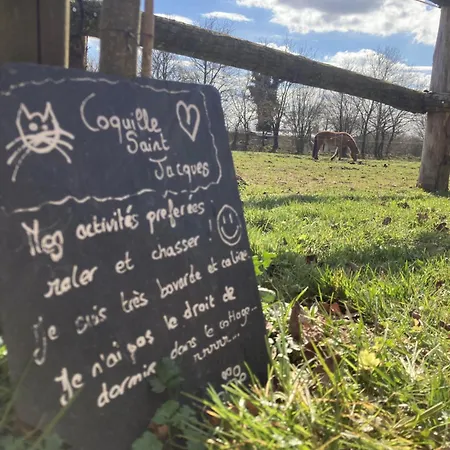 Coquille
Saint
Jacques
Mes activités préférées
raler et chasser !
je suis très bavarde et caline
Je n'ai pas le droit de
dormir dans le cottage...
rrrrr...